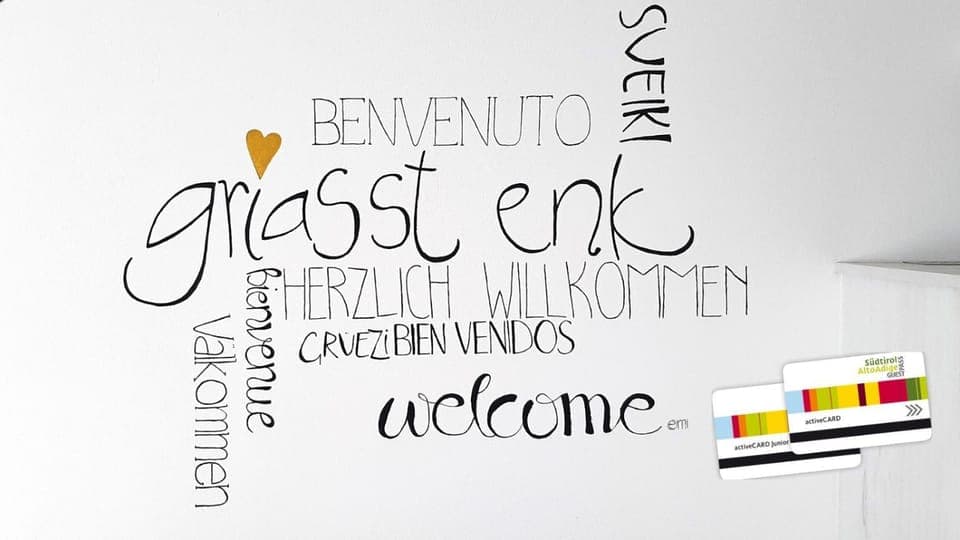 SVEIKI
BENVENUTO
griasst enk
HERZLICH WILLKOMMEN
bienvenue
GRÜEZI BIEN VENIDOS
Välkommen
welcome
emi
Südtirol
AltoAdige
GUESTPASS
activeCARD
activeCARD Junior